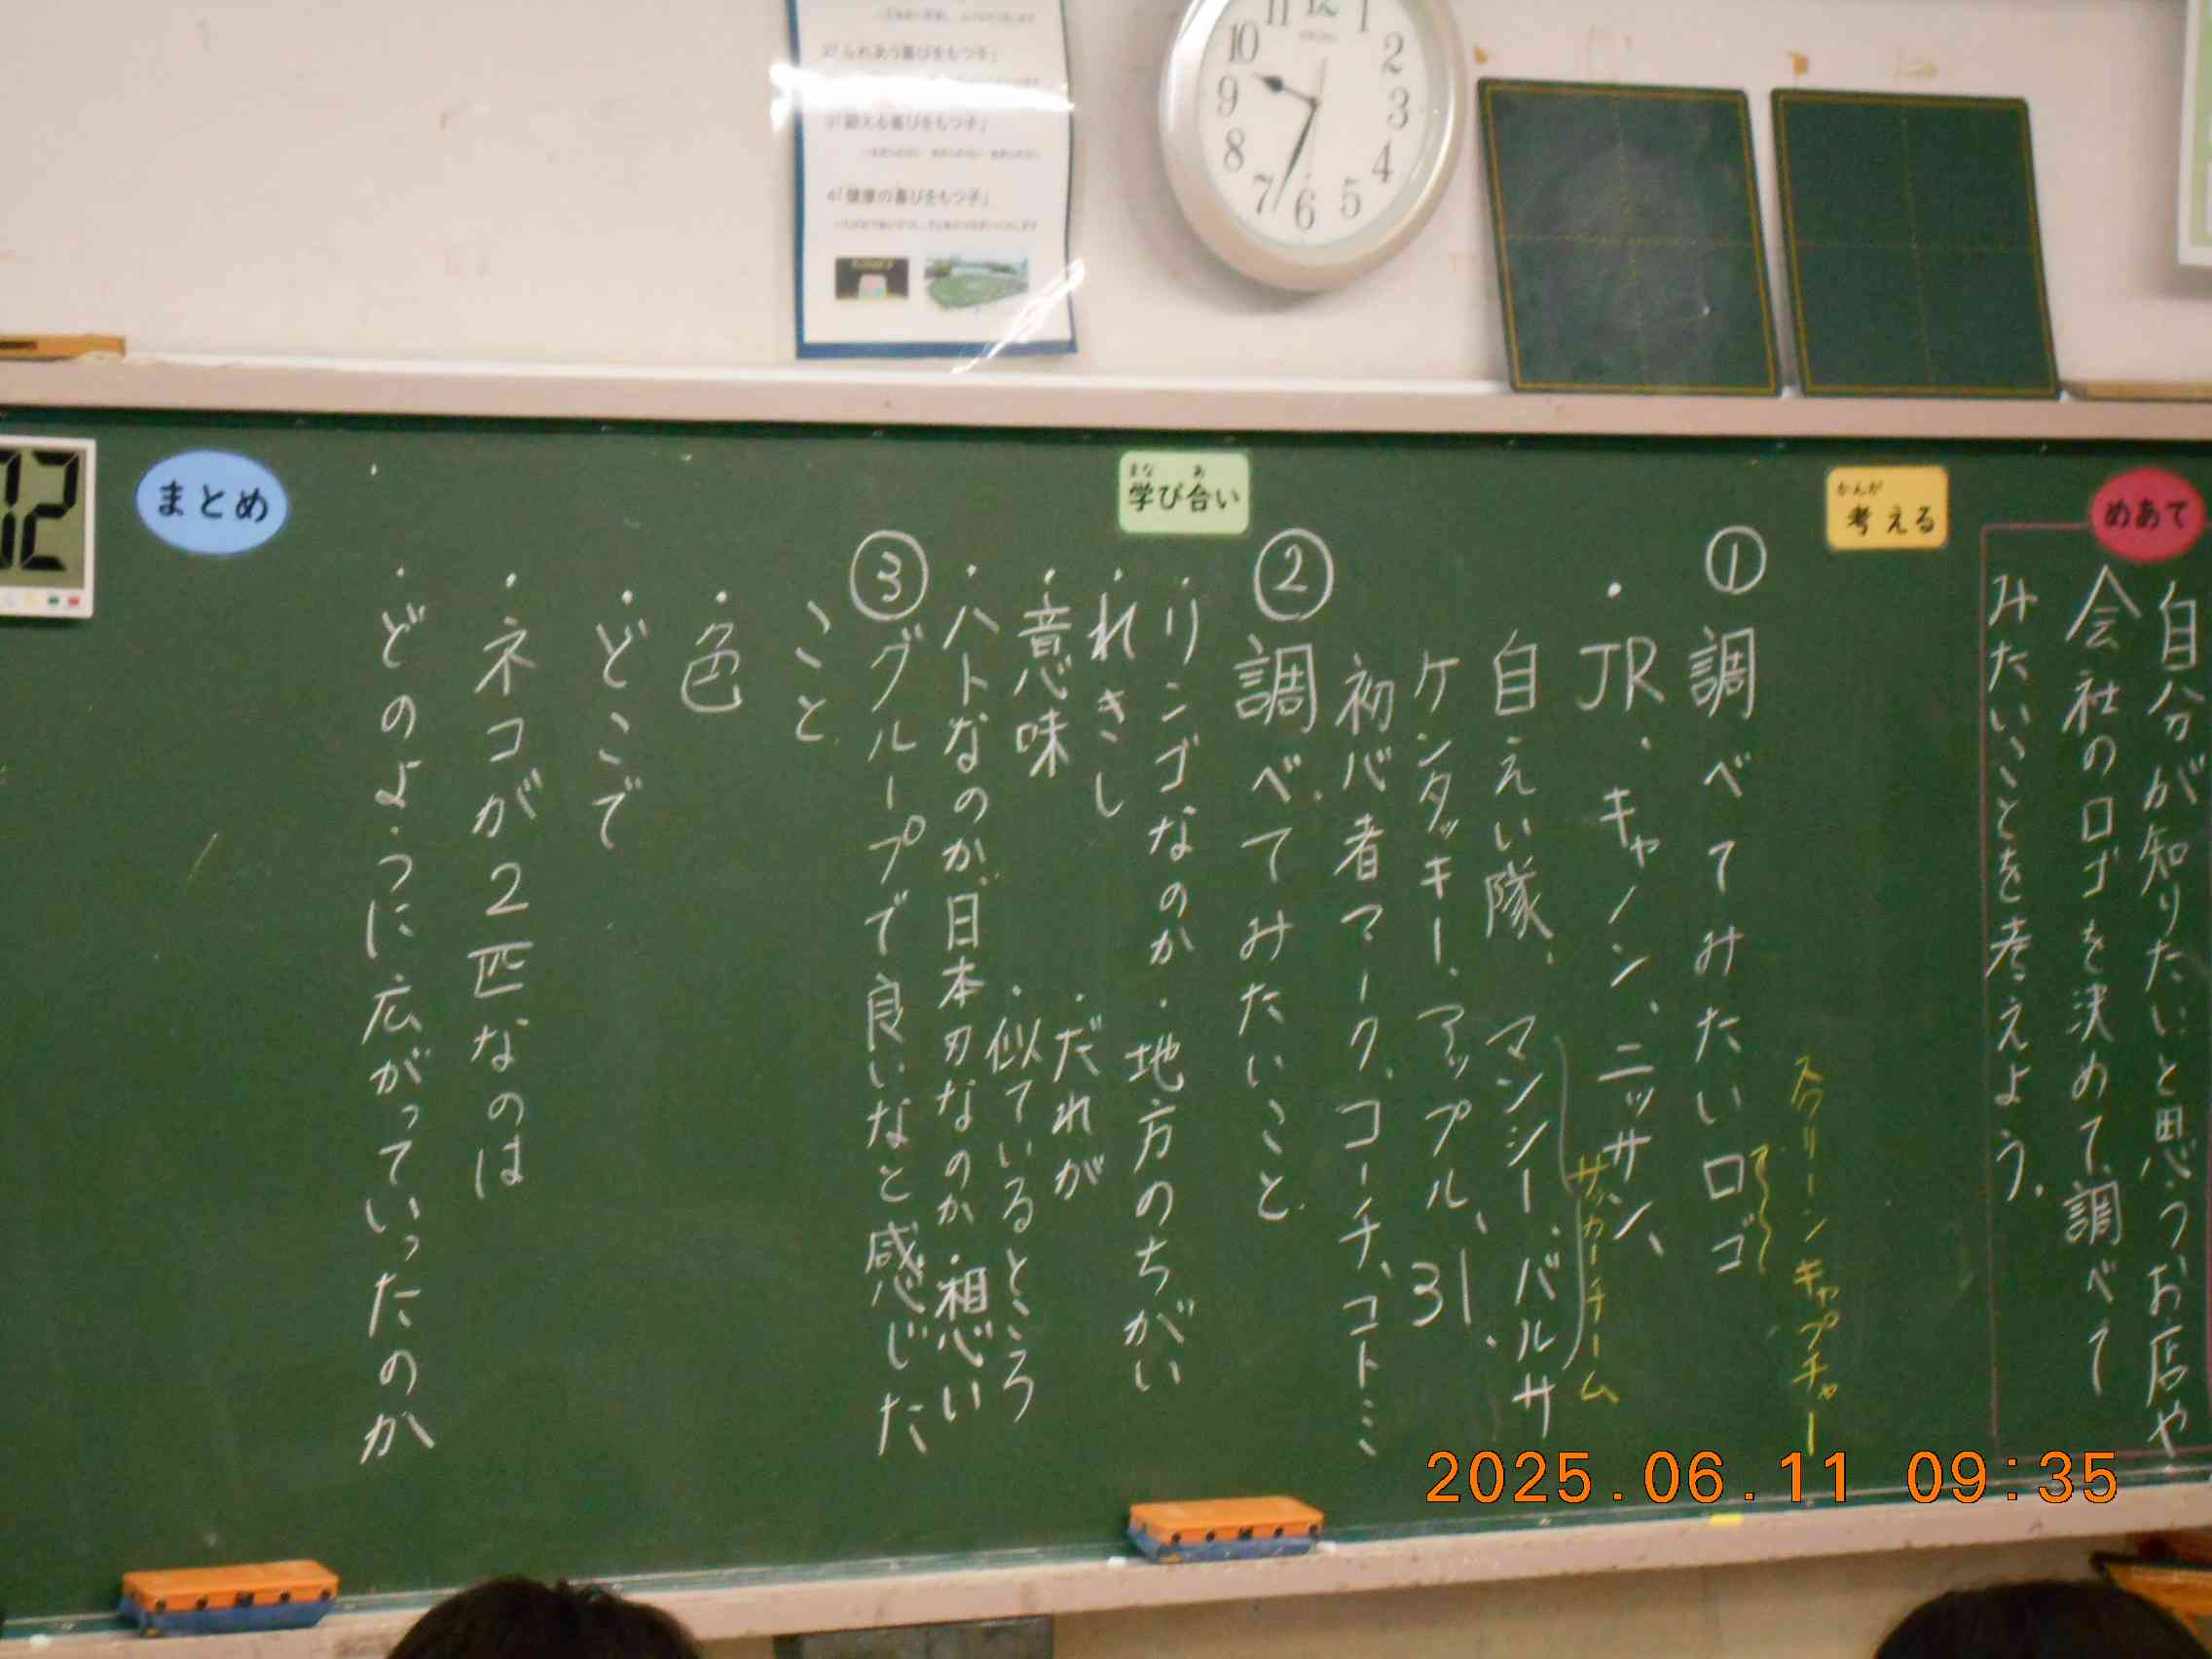 2「ふれあう喜びをもつ子」
3「鍛える喜びをもつ子」
4「健康の喜びをもつ子」
10
11
12
1
2
3
4
5
6
7
8
9
めあて
自分が知りたいと思うお店や
会社のロゴを決めて、調べて
みたいことを考えよう。
かんが
考える
スクリーンキャプチャー
① 調べてみたいロゴ
・JR、キャノン、ニッサン、
サッカーチーム
自えい隊、マンシー、バルサ
ケンタッキー、アップル、31、
初心者マーク、コーチ、コトミ
② 調べてみたいこと
まな あ
学び合い
・リンゴなのか
・地方のちがい
・れきし
・だれが
・意味
・似ているところ
・ハトなのか日本刀なのか
・想い
③ グループで良いなと感じた
こと
・色
・どこで
・ネコが2匹なのは
・どのように広がっていったのか
まとめ
2025.06.11 09:35